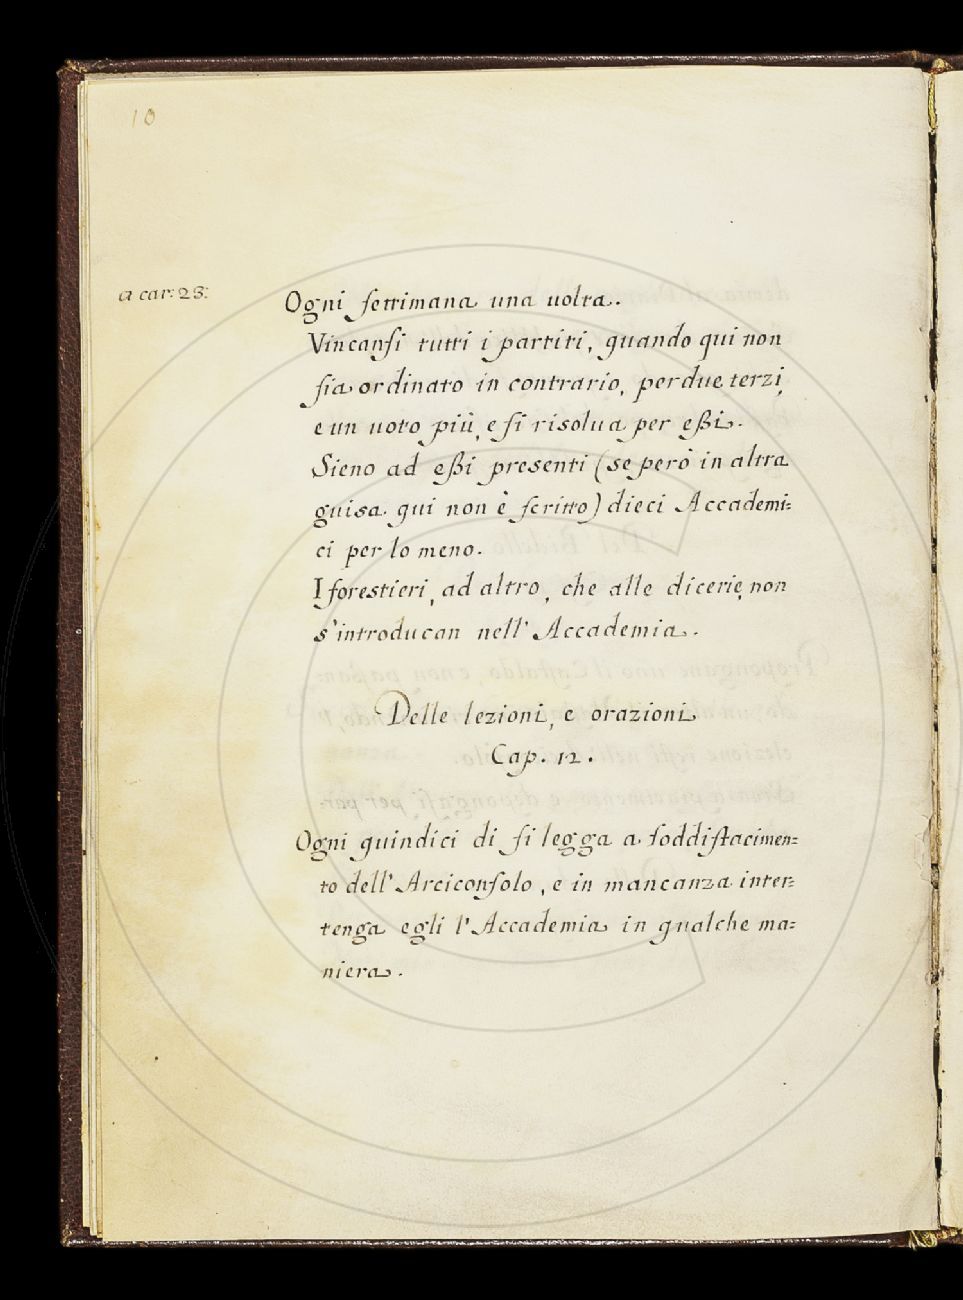 10
a car: 28:
Ogni settimana una uolta.
Vincansi tutti i partiti, quando qui non
sia ordinato in contrario, per due terzi,
e un uoto più, e si risolua per eßi.
Sieno ad eßi presenti (se però in altra
guisa qui non è scritto) dieci Accademi=
ci per lo meno.
I forestieri, ad altro, che alle dicerie, non
s'introducan nell' Accademia.
Delle lezioni, e orazioni
Cap. 12.
Ogni quindici dì si legga a soddisfacimen=
to dell' Arciconsolo, e in mancanza inter=
tenga egli l' Accademia in qualche ma=
niera.